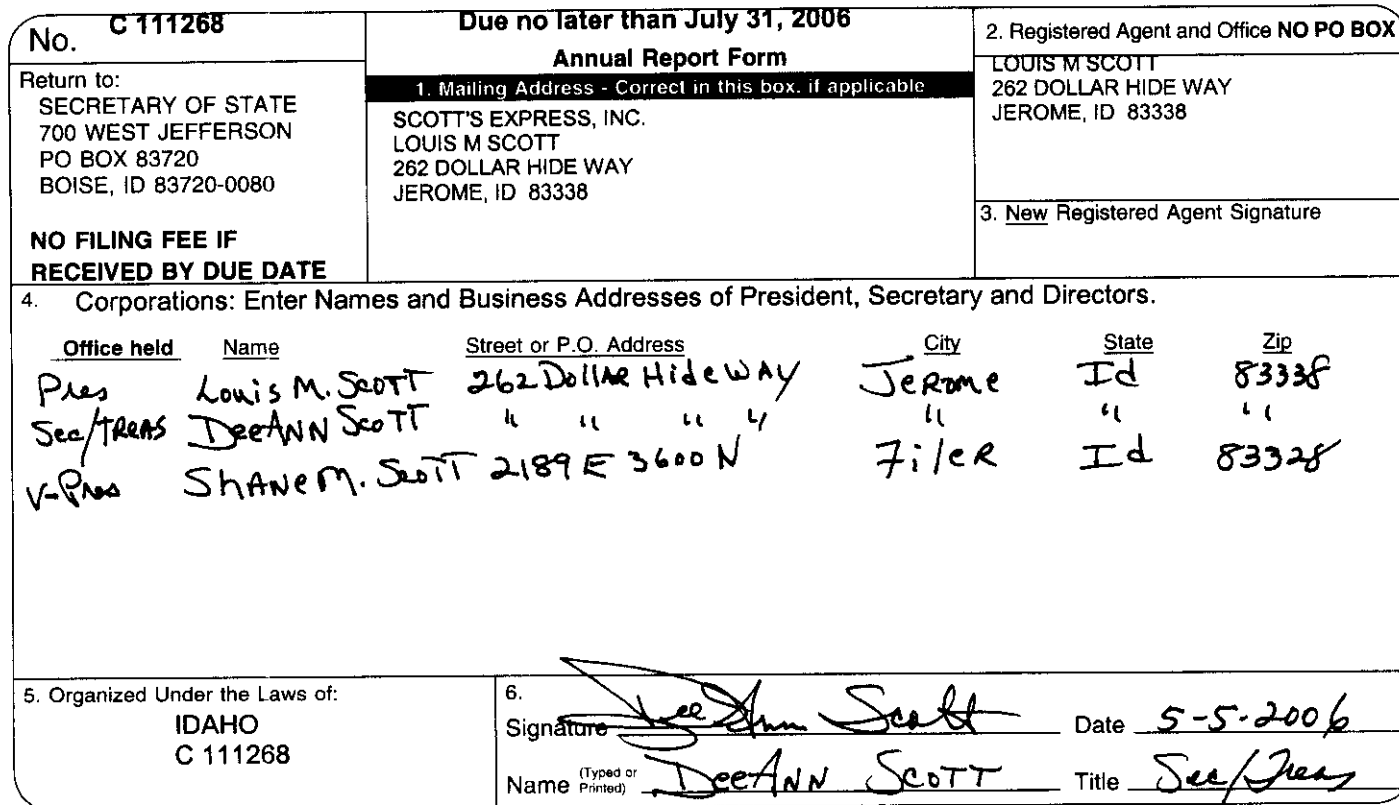 No. C 111268
Return to:
SECRETARY OF STATE
700 WEST JEFFERSON
PO BOX 83720
BOISE, ID 83720-0080
NO FILING FEE IF
RECEIVED BY DUE DATE
Due no later than July 31, 2006
Annual Report Form
1. Mailing Address - Correct in this box, if applicable
SCOTT'S EXPRESS, INC.
LOUIS M SCOTT
262 DOLLAR HIDE WAY
JEROME, ID 83338
2. Registered Agent and Office NO PO BOX
LOUIS M SCOTT
262 DOLLAR HIDE WAY
JEROME, ID 83338
3. New Registered Agent Signature
4. Corporations: Enter Names and Business Addresses of President, Secretary and Directors.
Office held Name Street or P.O. Address City State Zip
Pres Louis M. Scott 262 Dollar Hide Way Jerome Id 83338
Sec/Treas DeeAnn Scott " " " " " " "
V-Pres Shane M. Scott 2189 E 3600 N Filer Id 83328
5. Organized Under the Laws of:
IDAHO
C 111268
6.
Signature DeeAnn Scott Date 5-5-2006
Name (Typed or Printed) DeeAnn Scott Title Sec/Treas